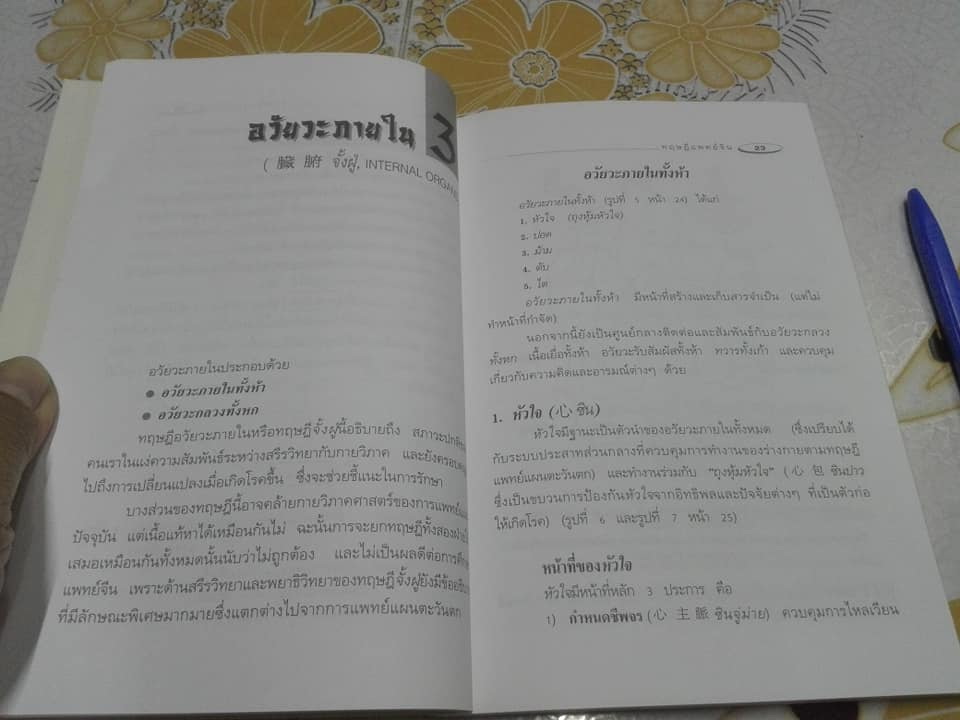 อวัยวะภายใน 3
( 臟 腑 จั้งฝู่, INTERNAL ORGAN
อวัยวะภายในประกอบด้วย
● อวัยวะภายในทั้งห้า
● อวัยวะกลวงทั้งหก
ทฤษฎีอวัยวะภายในหรือทฤษฎีจั้งฝู่นี้อธิบายถึง สภาวะปกติ
คนเราในแง่ความสัมพันธ์ระหว่างสรีรวิทยากับกายวิภาค และยังครอบคลุม
ไปถึงการเปลี่ยนแปลงเมื่อเกิดโรคขึ้น ซึ่งจะช่วยชี้แนะในการรักษา
บางส่วนของทฤษฎีนี้อาจคล้ายกายวิภาคศาสตร์ของการแพทย์
ปัจจุบัน แต่เนื้อแท้หาได้เหมือนกันไม่ ฉะนั้นการจะยกทฤษฎีทั้งสองฝ่าย
เสมอเหมือนกันทั้งหมดนั้นนับว่าไม่ถูกต้อง และไม่เป็นผลดีต่อการศึกษา
แพทย์จีน เพราะด้านสรีรวิทยาและพยาธิวิทยาของทฤษฎีจั้งฝู่ยังมีข้ออธิบาย
ที่มีลักษณะพิเศษมากมายซึ่งแตกต่างไปจากการแพทย์แผนตะวันตก
ทฤษฎีแพทย์จีน 23
อวัยวะภายในทั้งห้า
อวัยวะภายในทั้งห้า (รูปที่ 5 หน้า 24) ได้แก่
1. หัวใจ (ถุงหุ้มหัวใจ)
2. ปอด
3. ม้าม
4. ตับ
5. ไต
อวัยวะภายในทั้งห้า มีหน้าที่สร้างและเก็บสารจำเป็น (แต่ไม่
ทำหน้าที่กำจัด)
นอกจากนี้ยังเป็นศูนย์กลางติดต่อและสัมพันธ์กับอวัยวะกลวง
ทั้งหก เนื้อเยื่อทั้งห้า อวัยวะรับสัมผัสทั้งห้า ทวารทั้งเก้า และควบคุม
เกี่ยวกับความคิดและอารมณ์ต่างๆ ด้วย
1. หัวใจ (心 ซิน)
หัวใจมีฐานะเป็นตัวนำของอวัยวะภายในทั้งหมด (ซึ่งเปรียบได้
กับระบบประสาทส่วนกลางที่ควบคุมการทำงานของร่างกายตามทฤษฎี
แพทย์แผนตะวันตก) และทำงานร่วมกับ "ถุงหุ้มหัวใจ" (心 包 ซินปาว
ซึ่งเป็นขบวนการป้องกันหัวใจจากอิทธิพลและปัจจัยต่างๆ ที่เป็นตัวก่อ
ให้เกิดโรค) (รูปที่ 6 และรูปที่ 7 หน้า 25)
หน้าที่ของหัวใจ
หัวใจมีหน้าที่หลัก 3 ประการ คือ
1) กำหนดชีพจร (心 主 脈 ซินจู่ม่าย) ควบคุมการไหลเวียน